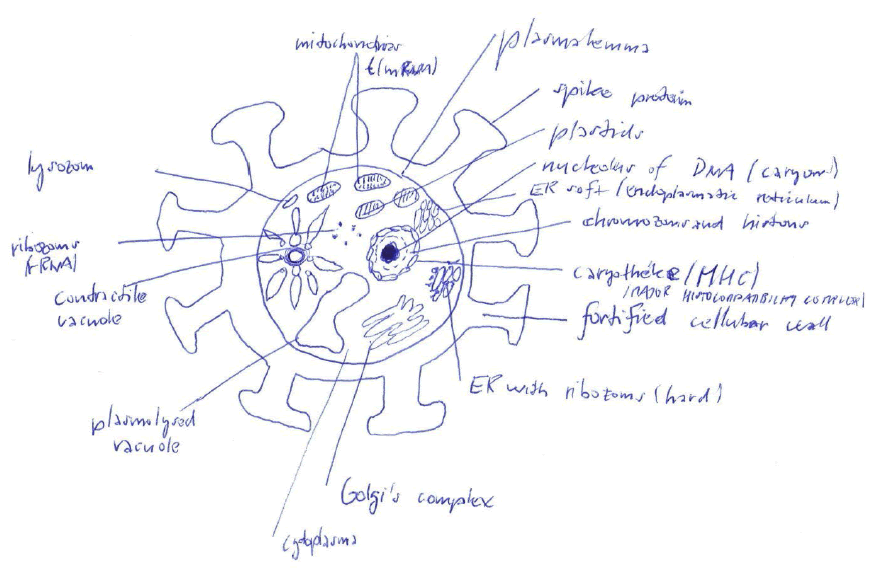 mitochondrias
t(mRNA)
plasmalemma
spike protein
plastids
nucleolus of DNA (caryon)
ER soft (endoplasmatic reticulum)
chromozoms and histons
caryothéke (MHC)
(MAJOR HISTOCOMPATIBILITY COMPLEX)
fortified cellular wall
ER with ribozoms (hard)
Golgi's complex
cytoplasma
plasmolysed
vacuole
contractile
vacuole
ribozoms
(rRNA)
lysozom